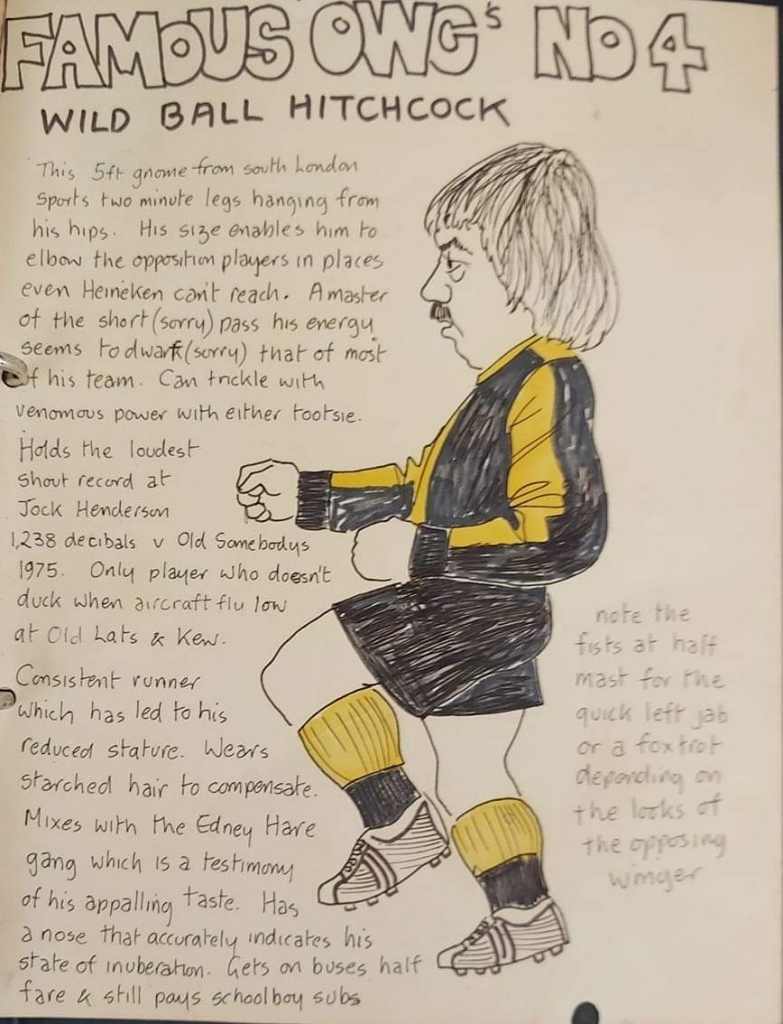 FAMOUS OWG's NO 4
WILD BALL HITCHCOCK
This 5ft gnome from south London
Sports two minute legs hanging from
his hips. His size enables him to
elbow the opposition players in places
even Heineken can't reach. A master
of the short (sorry) pass his energy
seems to dwarf (sorry) that of most
of his team. Can trickle with
venomous power with either tootsie.
Holds the loudest
shout record at
Jock Henderson
1,238 decibals v Old Somebodys
1975. Only player who doesn't
duck when aircraft flu low
at Old Lats & Kew.
Consistent runner
which has led to his
reduced stature. Wears
starched hair to compensate.
Mixes with the Edney Hare
gang which is a testimony
of his appalling taste. Has
a nose that accurately indicates his
state of inuberation. Gets on buses half
fare & still pays schoolboy subs
note the
fists at half
mast for the
quick left jab
or a foxtrot
depending on
the looks of
the opposing
winger